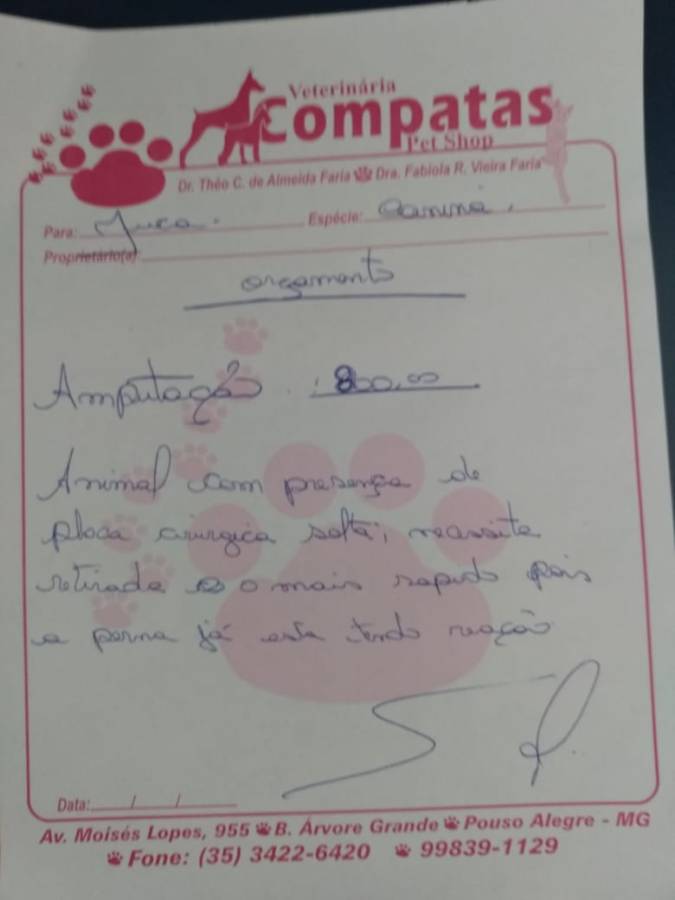 Veterinária
Compatas
Pet Shop
Dr. Théo C. de Almeida Faria Dra. Fabiola R. Vieira Faria
Para: Juca. Espécie: Canina.
Proprietário(a):
orçamento
Amputação : 800,00
Animal com presença de
placa cirurgica solta, necessita
retirada o mais rapido pois
a perna já esta tendo reação
Data: / /
Av. Moisés Lopes, 955 B. Árvore Grande Pouso Alegre - MG
Fone: (35) 3422-6420 99839-1129